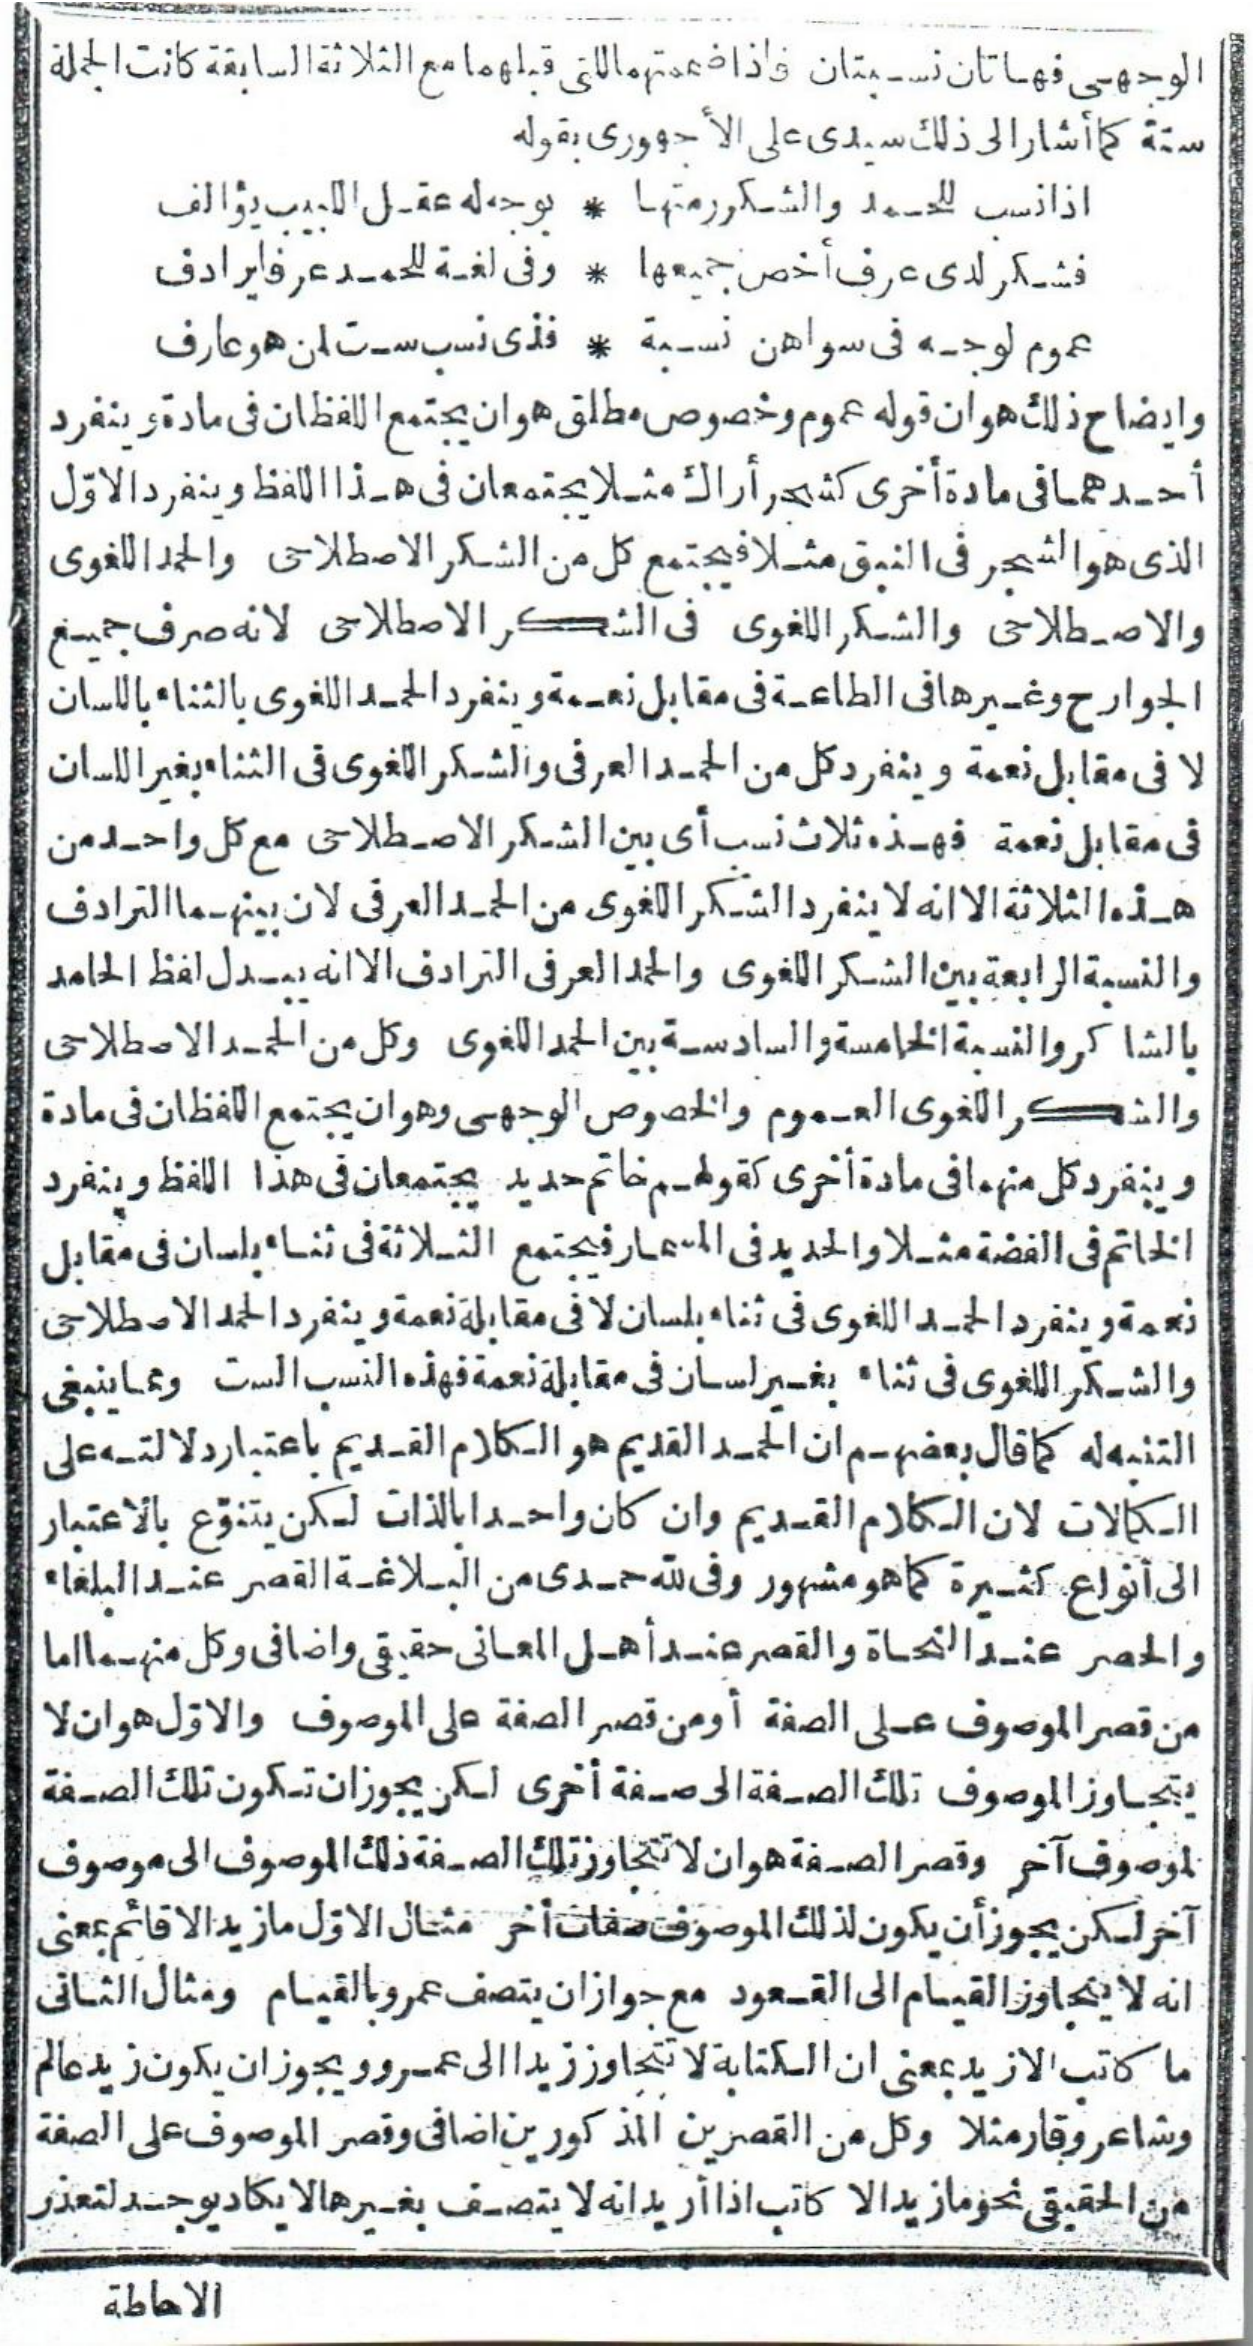 الوجهى فهاتان نسبتان فاذا ضممتهما للتى قبلهما مع الثلاثة السابقة كانت الجملة
ستة كما أشار الى ذلك سيدى على الأجهورى بقوله
اذا نسب للحمد والشكر رمتها * بوجه له عقل اللبيب يؤالف
فشكر لدى عرف أخص جميعها * وفى لغة للحمد عرفا يرادف
عموم لوجه فى سواهن نسبة * فذى نسب ست لمن هو عارف
وايضاح ذلك هو ان قوله عموم وخصوص مطلق هو ان يجتمع اللفظان فى مادة وينفرد
أحدهما فى مادة أخرى كشجر أراك مثلا يجتمعان فى هذا اللفظ وينفرد الاوّل
الذى هو الشجر فى النبق مثلا فيجتمع كل من الشكر الاصطلاحى والحمد اللغوى
والاصطلاحى والشكر اللغوى فى الشكر الاصطلاحى لانه صرف جميع
الجوارح وغيرها فى الطاعة فى مقابل نعمة وينفرد الحمد اللغوى بالثناء باللسان
لا فى مقابل نعمة وينفرد كل من الحمد العرفى والشكر اللغوى فى الثناء بغير اللسان
فى مقابل نعمة فهذه ثلاث نسب أى بين الشكر الاصطلاحى مع كل واحد من
هذه الثلاثة الا انه لا ينفرد الشكر اللغوى من الحمد العرفى لان بينهما الترادف
والنسبة الرابعة بين الشكر اللغوى والحمد العرفى الترادف الا انه يبدل لفظ الحامد
بالشاكر والنسبة الخامسة والسادسة بين الحمد اللغوى وكل من الحمد الاصطلاحى
والشكر اللغوى العموم والخصوص الوجهى وهو ان يجتمع اللفظان فى مادة
وينفرد كل منهما فى مادة أخرى كقولهم خاتم حديد يجتمعان فى هذا اللفظ وينفرد
الخاتم فى الفضة مثلا والحديد فى المسمار فيجتمع الثلاثة فى ثناء بلسان فى مقابل
نعمة وينفرد الحمد اللغوى فى ثناء بلسان لا فى مقابلة نعمة وينفرد الحمد الاصطلاحى
والشكر اللغوى فى ثناء بغير لسان فى مقابلة نعمة فهذه النسب الست ومما ينبغى
التنبه له كما قال بعضهم ان الحمد القديم هو الكلام القديم باعتبار دلالته على
الكمالات لان الكلام القديم وان كان واحدا بالذات لكن يتنوّع بالاعتبار
الى أنواع كثيرة كما هو مشهور وفى لله حمدى من البلاغة القصر عند البلغاء
والحصر عند النحاة والقصر عند أهل المعانى حقيقى واضافى وكل منهما اما
من قصر الموصوف على الصفة أو من قصر الصفة على الموصوف والاوّل هو ان لا
يتجاوز الموصوف تلك الصفة الى صفة أخرى لكن يجوز ان تكون تلك الصفة
لموصوف آخر وقصر الصفة هو ان لا تتجاوز تلك الصفة ذلك الموصوف الى موصوف
آخر لكن يجوز أن يكون لذلك الموصوف صفات أخر مثال الاوّل ما زيد الا قائم بمعنى
انه لا يتجاوز القيام الى القعود مع جواز ان يتصف عمرو بالقيام ومثال الثانى
ما كاتب الا زيد بمعنى ان الكتابة لا تتجاوز زيدا الى عمرو ويجوز ان يكون زيد عالم
وشاعر وقار مثلا وكل من القصرين المذكورين اضافى وقصر الموصوف على الصفة
من الحقيقى نحو ما زيد الا كاتب اذا أريد انه لا يتصف بغيرها لا يكاد يوجد لتعذر
الاحاطة